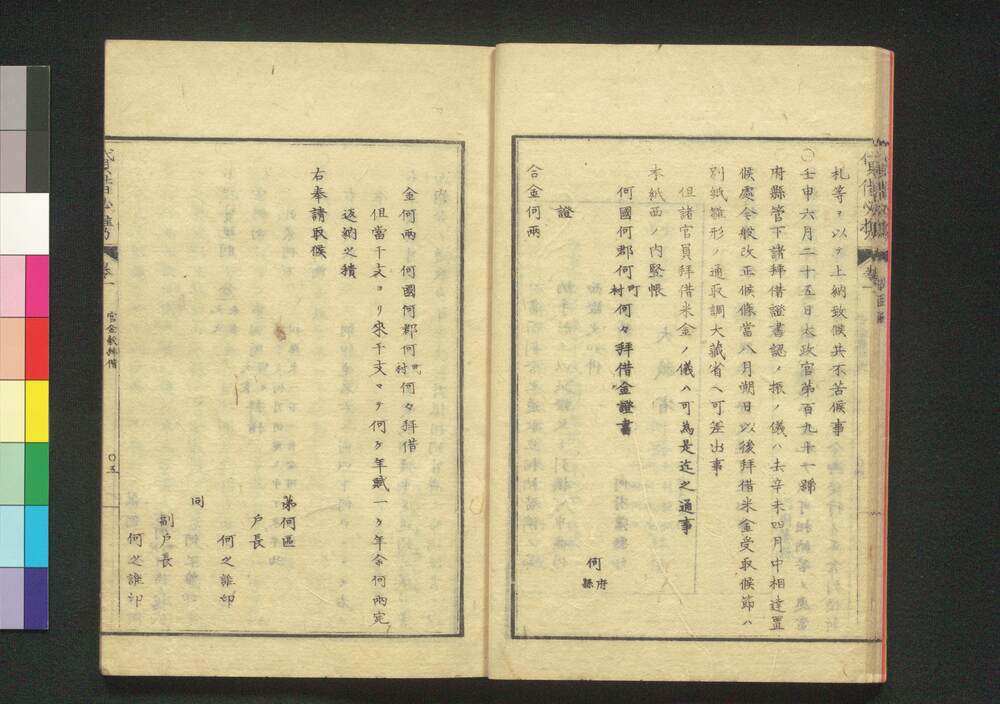 札等ヲ以テ上納致候共不苦候事
○壬申六月二十五日太政官第百九十一號
府縣管下諸拜借證書認ノ振ノ儀ハ去辛未四月中相達置
候處今般改正候條當八月朔日以後拜借米金受取候節ハ
別紙雛形ノ通取調大藏省ヘ可差出事
但諸官員拜借米金ノ儀ハ可為是迄之通事
本紙西ノ内竪帳
何國何郡何町村何々拜借金證書
何府縣
證
合金何兩
金何兩 何國何郡何町村何々拜借
但當干支ヨリ來干支マテ何ヶ年賦一ヶ年金何兩宛
返納之積
右奉請取候
第何區
戸長
何之誰印
同
副戸長
何之誰印
卷一
官金穀拜借
○五